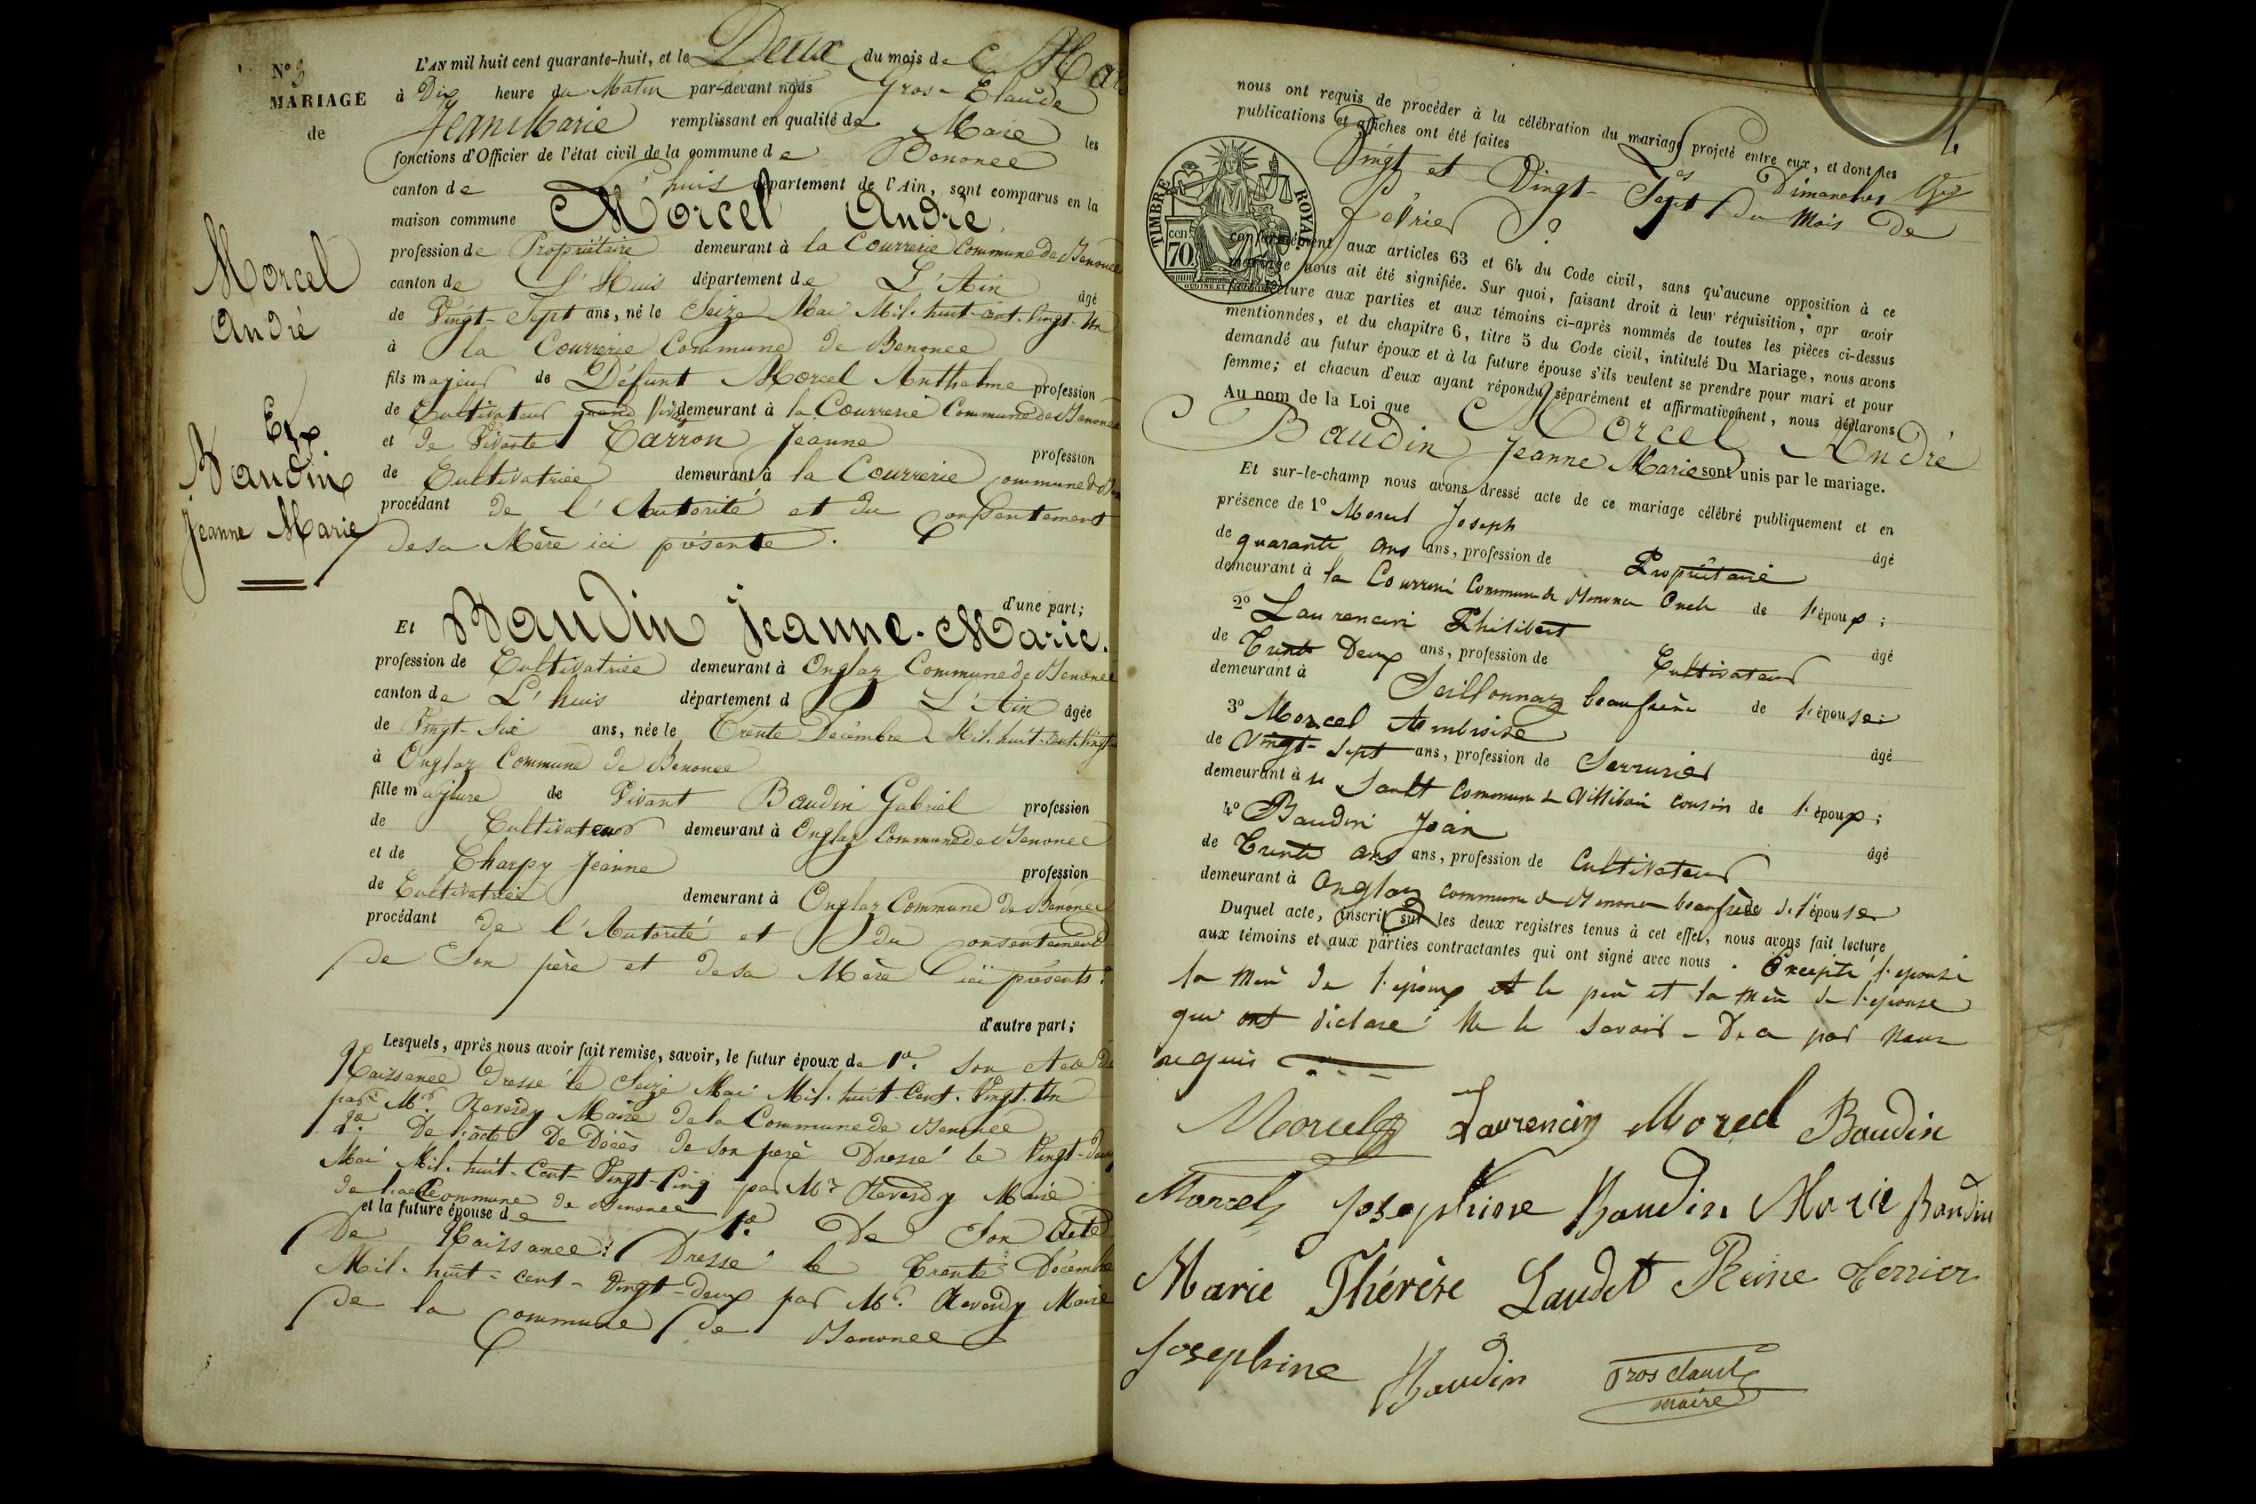 N° 3
MARIAGE
de
Morcel
André
Et
Baudin
Jeanne Marie
L'AN mil huit cent quarante-huit, et le Deux du mois de Mars
à Dix heure du Matin par-devant nous Gros-Claude
Jean Marie remplissant en qualité de Maire les
fonctions d'Officier de l'état civil de la commune de Benonce
canton de L'huis département de l'Ain, sont comparus en la
maison commune Morcel André
profession de Propriétaire demeurant à la Courrerie Commune de Benonce
canton de L'Huis département de L'Ain âgé
de Vingt-Sept ans, né le Seize Mai Mil-huit-cent-Vingt-Un
à la Courrerie Commune de Benonce
fils majeur de Défunt Morcel Anthelme profession
de Cultivateur quand Vivait demeurant à la Courrerie Commune de Benonce
et de Vivante Carron Jeanne profession
de Cultivatrice demeurant à la Courrerie commune de Ben
procédant de l'Autorité et du Consentement
de sa Mère ici présente.
d'une part;
Et Baudin Jeanne-Marie.
profession de Cultivatrice demeurant à Onglaz Commune de Benonce
canton de L'huis département d L'Ain âgée
de Vingt-Six ans, née le Trente Décembre Mil-huit-cent-Vingt-
à Onglaz Commune de Benonce
fille majeure de Vivant Baudin Gabriel profession
de Cultivateur demeurant à Onglaz Commune de Benonce
et de Charpy Jeanne profession
de Cultivatrice demeurant à Onglaz Commune de Benonce
procédant de l'Autorité et du consentement
de Son père et de sa Mère ici présents.
d'autre part;
Lesquels, après nous avoir fait remise, savoir, le futur époux de 1°. Son Acte de
Naissance Dressé le Seize Mai Mil-huit-Cent-Vingt-Un
par Mr. Reverdy Maire de la Commune de Benonce
2°. De l'acte De Décès de Son père Dressé le Vingt-Deux
Mai Mil-huit-Cent-Vingt-Cinq par Mr Reverdy Maire
de la Commune de Benonce
et la future épouse de 1°. De Son Acte
De Naissance Dressé le Trente Décembre
Mil-huit-cent-Vingt-deux par Mr. Reverdy Maire
de la commune de Benonce
4
nous ont requis de procéder à la célébration du mariage projeté entre eux, et dont les
publications et affiches ont été faites Les Dimanches
Vingt et Vingt-Sept du Mois de
Février
TIMBRE ROYAL
cen
70.
conformément aux articles 63 et 64 du Code civil, sans qu'aucune opposition à ce
mariage nous ait été signifiée. Sur quoi, faisant droit à leur réquisition, apr avoir
fait lecture aux parties et aux témoins ci-après nommés de toutes les pièces ci-dessus
mentionnées, et du chapitre 6, titre 5 du Code civil, intitulé Du Mariage, nous avons
demandé au futur époux et à la future épouse s'ils veulent se prendre pour mari et pour
femme; et chacun d'eux ayant répondu séparément et affirmativement, nous déclarons
Au nom de la Loi que Morcel André
Baudin Jeanne Marie sont unis par le mariage.
Et sur-le-champ nous avons dressé acte de ce mariage célébré publiquement et en
présence de 1° Morcel Joseph âgé
de quarante ans ans, profession de Propriétaire
demeurant à la Courrerie Commune de Benonce Oncle de l'époux;
2° Laurencin Philibert âgé
de Trente Deux ans, profession de Cultivateur
demeurant à Seillonnaz beaufrère de l'épouse;
3° Morcel Ambroise âgé
de Vingt-Sept ans, profession de Serrurier
demeurant à le Sault Commune de Villebois cousin de l'époux;
4° Baudin Jean âgé
de Trente ans ans, profession de Cultivateur
demeurant à Onglaz commune de Benonce beaufrère de l'épouse
Duquel acte, inscrit sur les deux registres tenus à cet effet, nous avons fait lecture
aux témoins et aux parties contractantes qui ont signé avec nous. Excepté l'épouse
la mère de l'époux et le père et la mère de l'épouse
qui ont déclaré ne le savoir - De ce par nous
requis
Morcel Laurencin Morcel Baudin
Morcel Josephine Baudin Marie Baudin
Marie Thérèse Laudet Reine
Josephine Baudin Gros Claude
maire